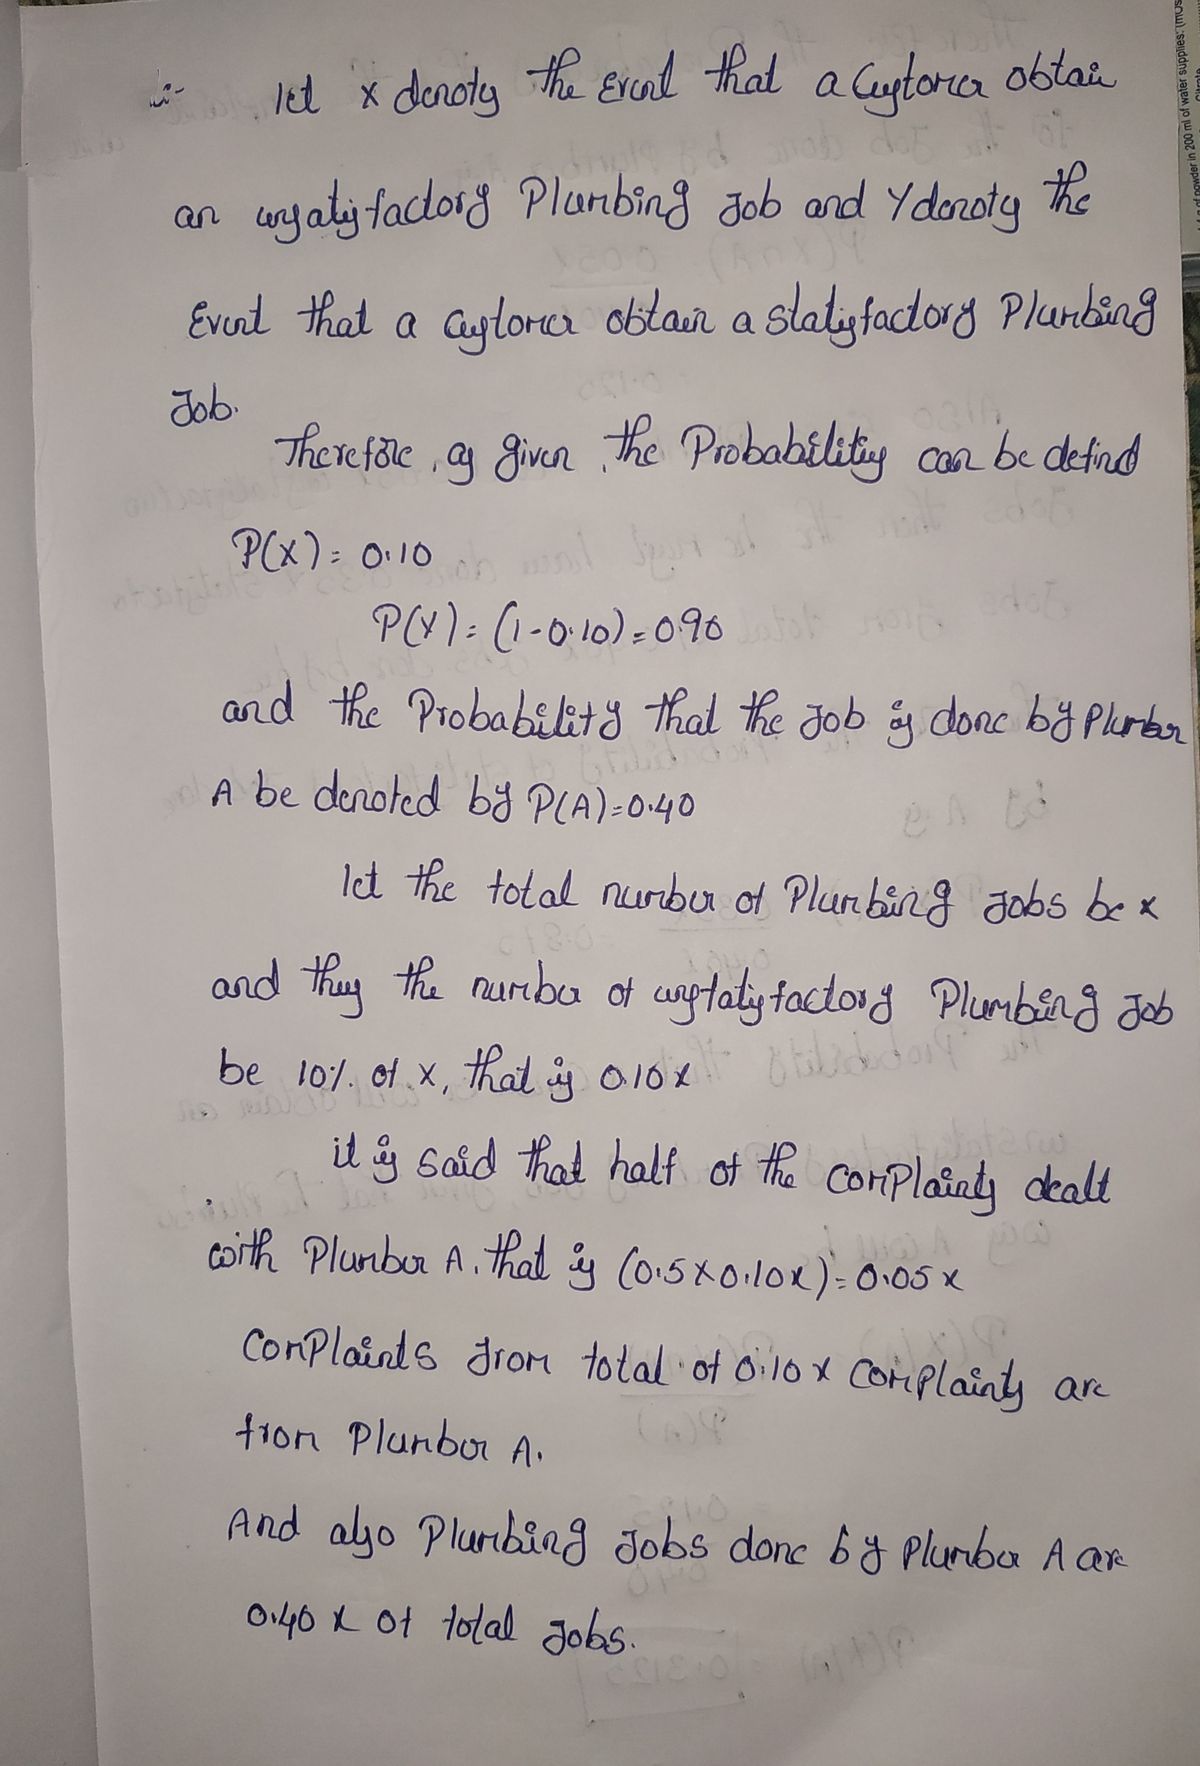 let x denots the Event that a Customer obtain
an unsatisfactory Plumbing Job and Y denots the
Event that a Customer obtain a statisfactory Plumbing
Job.
Therefore, as given, the Probabilitis can be defined
P(X) = 0.10
P(Y) = (1-0.10) = 0.90
and the Probability that the Job is done by Plumber
A be denoted by P(A)=0.40
let the total number of Plumbing Jobs be x
and thus the number of unstatisfactory Plumbing Job
be 10% of x, that is 0.10x
it is said that half of the Complaints dealt
with Plumber A. that is (0.5x0.10x)=0.05x
Complaints from total of 0.10x Complaints are
from Plumber A.
And also Plumbing Jobs done by Plumber A are
0.40x of total Jobs.
of powder in 200 ml of water supplies: